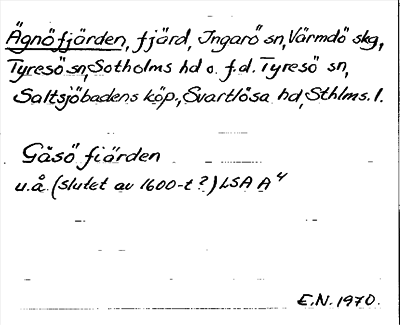 Ägnöfjärden, fjärd, Ingarö sn, Värmdö skg,
Tyresö sn, Sotholms hd o. f.d. Tyresö sn,
Saltsjöbadens köp., Svartlösa hd, Sthlms. l.
Gåsö fiärden
u.å. (slutet av 1600-t?) LSA A4
E.N. 1970.